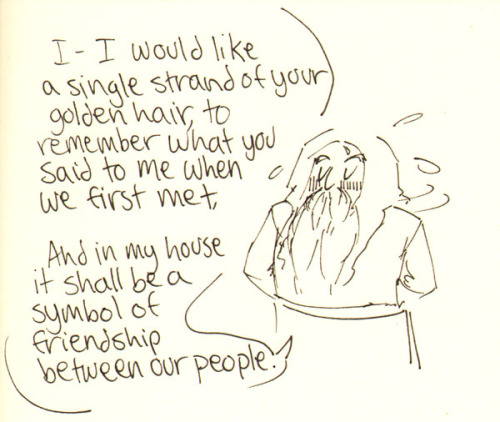 I-I would like
a single strand of your
golden hair, to
remember what you
said to me when
we first met,
And in my house
it shall be a
symbol of
friendship
between our people.